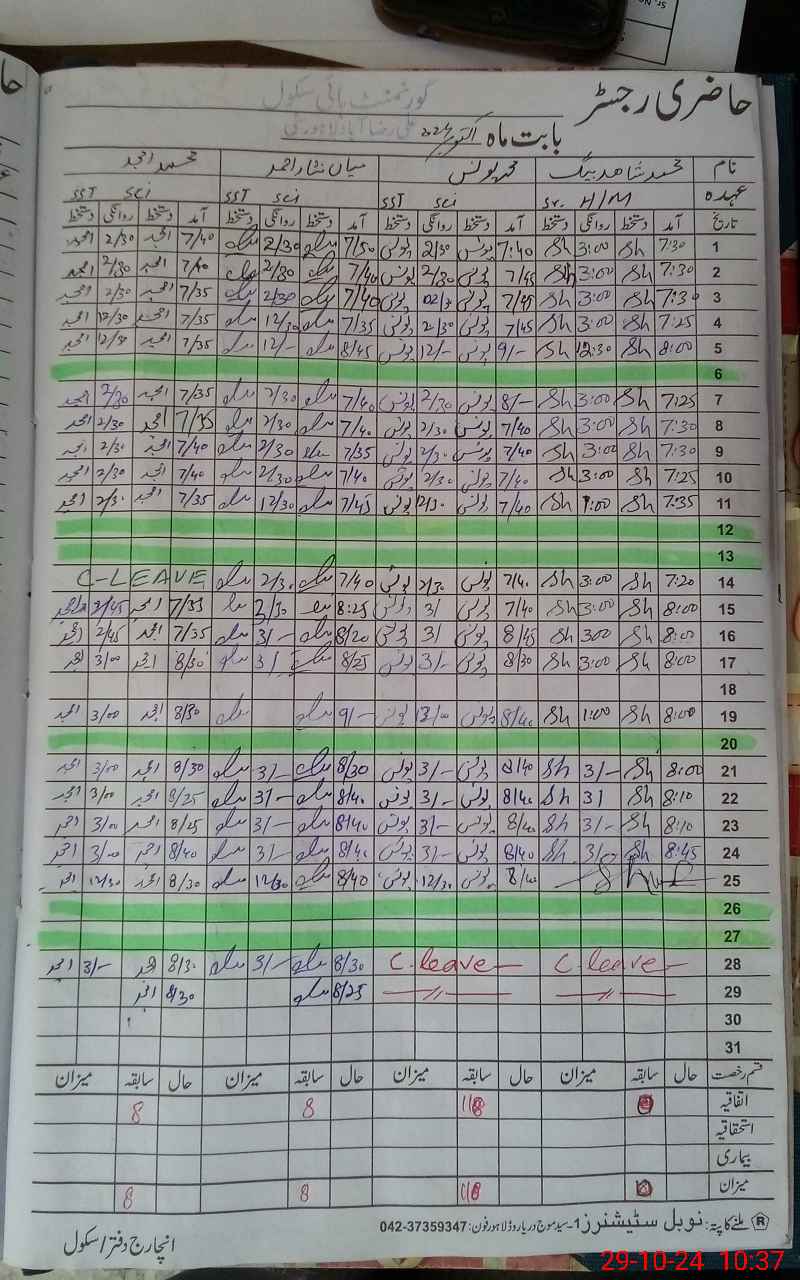 حاضری رجسٹر
گورنمنٹ ہائی سکول
علی رضا آباد لاہور
بابت ماہ اکتوبر 2024
نام محمد شاھد بیگ محمد یونس میاں نثار احمد محمد امجد
عہدہ Sr. H/M SST Sci SST Sci SST Sci
تاریخ آمد دستخط روانگی دستخط آمد دستخط روانگی دستخط آمد دستخط روانگی دستخط آمد دستخط روانگی دستخط
1 7:30 Sh 3:00 Sh 7:40 یونس 2/30 یونس 7/50 2/30 7/40 امجد 2/30 امجد
2 7:30 Sh 3:00 Sh 7/45 یونس 2/30 یونس 7/40 2/30 7/40 امجد 2/30 امجد
3 7:30 Sh 3:00 Sh 7/45 یونس 2/30 یونس 7/40 2/30 7/35 امجد 2/30 امجد
4 7:25 Sh 3:00 Sh 7/45 یونس 2/30 یونس 7/35 12/30 7/35 امجد 12/30 امجد
5 8:00 Sh 12:30 Sh 9/- یونس 12/- یونس 8/45 12/- 7/35 امجد 12/30 امجد
6
7 7:25 Sh 3:00 Sh 8/- یونس 2/30 یونس 7/40 2/30 7/35 امجد 2/30 امجد
8 7:30 Sh 3:00 Sh 7/40 یونس 2/30 یونس 7/40 2/30 7/35 امجد 2/30 امجد
9 7:30 Sh 3:00 Sh 7/40 یونس 2/30 یونس 7/35 2/30 7/40 امجد 2/30 امجد
10 7:25 Sh 3:00 Sh 7/40 یونس 2/30 یونس 7/40 2/30 7/40 امجد 2/30 امجد
11 7:35 Sh 1:00 Sh 7/40 یونس 12/30 یونس 7/45 12/30 7/35 امجد 2/30 امجد
12
13
14 7:20 Sh 3:00 Sh 7/40 یونس 2/30 یونس 7/40 2/30 C-LEAVE
15 8:00 Sh 3:00 Sh 7/40 یونس 3/ یونس 8:25 2/30 7/35 امجد 2/45 امجد
16 8:00 Sh 300 Sh 8/45 یونس 3/ یونس 8/20 3/- 7/35 امجد 2/45 امجد
17 8:00 Sh 3:00 Sh 8/30 یونس 3/- یونس 8/25 3/ 8/30 امجد 3/00 امجد
18
19 8:00 Sh 1:00 Sh 8/40 یونس یونس 9/- 8/30 امجد 3/00 امجد
20
21 8:00 Sh 3/- Sh 8/40 یونس 3/- یونس 8/30 3/- 8/30 امجد 3/00 امجد
22 8:10 Sh 3/ Sh 8/40 یونس 3/- یونس 8/40 3/- 8/25 امجد 3/00 امجد
23 8:10 Sh 3/- Sh 8/40 یونس 3/- یونس 8/40 3/- 8/25 امجد 3/00 امجد
24 8:45 Sh 3/ Sh 8/40 یونس 3/- یونس 8/40 3/- 8/40 امجد 3/00 امجد
25 8/40 یونس 12/30 یونس 8/40 12/30 8/30 امجد 12/30 امجد
26
27
28 C.leave C.leave 8/30 3/- 8/30 امجد 3/- امجد
29 —//— —//— 8/25 8/30 امجد
30
31
قسم رخصت حال سابقہ میزان حال سابقہ میزان حال سابقہ میزان حال سابقہ میزان
اتفاقیہ 8 8
استحقاقیہ
بیماری
میزان 8 8
ملنے کا پتہ: نوبل سٹیشنرز 1-سید موج دریا روڈ لاہور فون: 042-37359347
انچارج دفتر/سکول
29-10-24 10:37